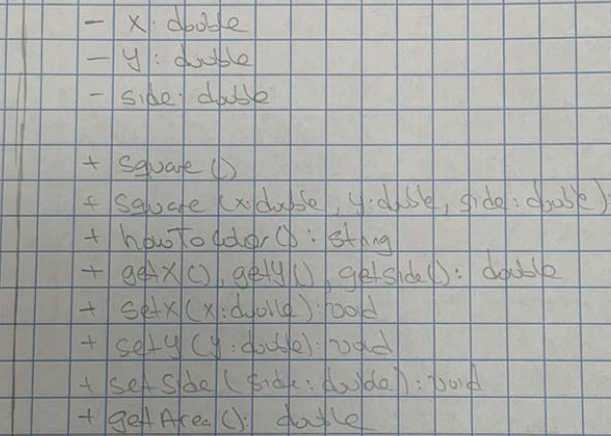 - x: double
- y: double
- side: double
+ square()
+ square (x:double, y:double, side: double)
+ howToColor(): string
+ getX(), getY(), getside(): double
+ setX(x:double): void
+ setY(y:double): void
+ setSide(side: double): void
+ getArea(): double